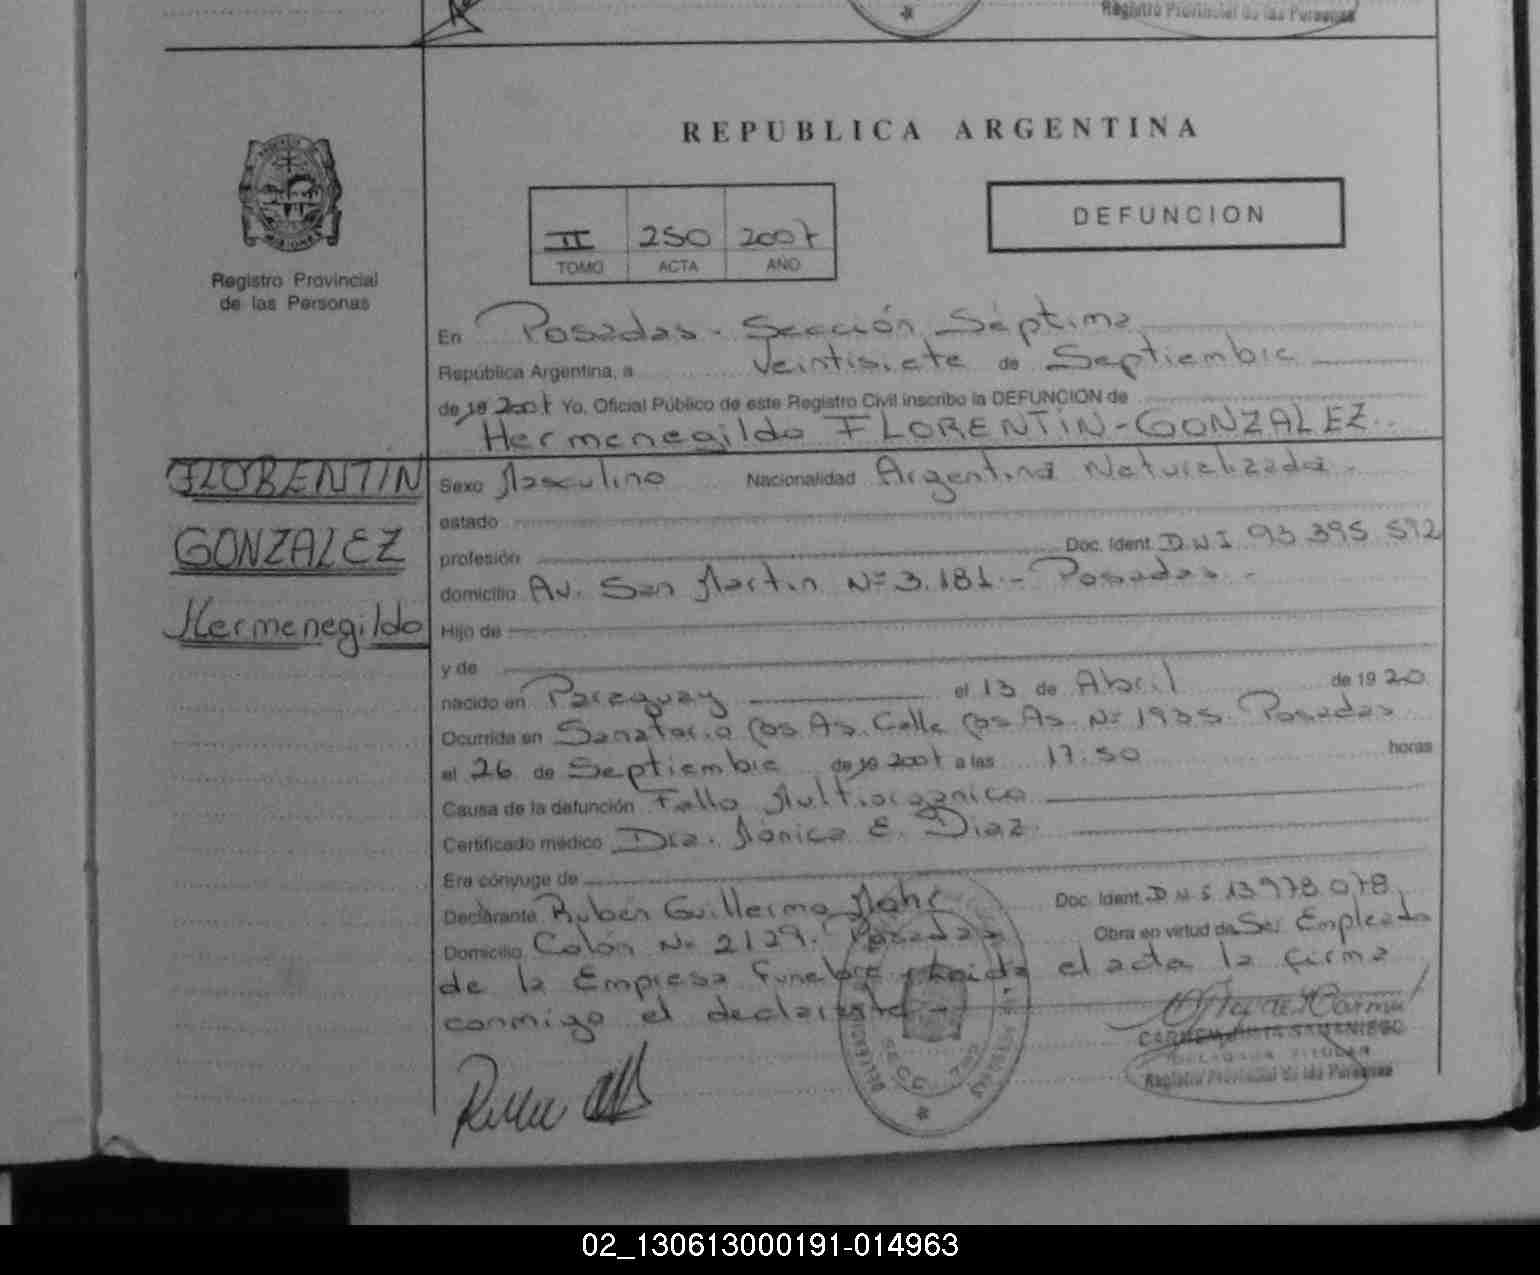 Registro Provincial de las Personas
REPUBLICA ARGENTINA
II 250 2007
TOMO ACTA AÑO
DEFUNCION
MISIONES
Registro Provincial
de las Personas
En Posadas - Sección Séptima
República Argentina, a Veintisiete de Septiembre
de 19 2007 Yo, Oficial Público de este Registro Civil inscribo la DEFUNCION de
Hermenegildo FLORENTIN-GONZALEZ.
FLORENTIN
GONZALEZ
Hermenegildo
Sexo Masculino Nacionalidad Argentina Naturalizada.
estado
profesión Doc. Ident. D.N.I. 93 395 592
domicilio Av. San Martin Nº 3.181 - Posadas -
Hijo de
y de
nacido en Paraguay el 13 de Abril de 1920
Ocurrida en Sanatorio Bs. As. Calle Bs As. Nº 1935. Posadas
el 26 de Septiembre de 19 2007 a las 17.50 horas
Causa de la defunción Fallo Multiorganico
Certificado médico Dra. Mónica E. Diaz
Era cónyuge de
Declarante Ruben Guillermo Doc. Ident. D.N.I. 13 978 078
Domicilio Colón Nº 2129. Posadas Obra en virtud de Ser Empleado
de la Empresa Funebre y Leida el acta la firma
conmigo el declarante -
CARMEN SAMANIEGO
DELEGADA TITULAR
Registro Provincial de las Personas
02_130613000191-014963